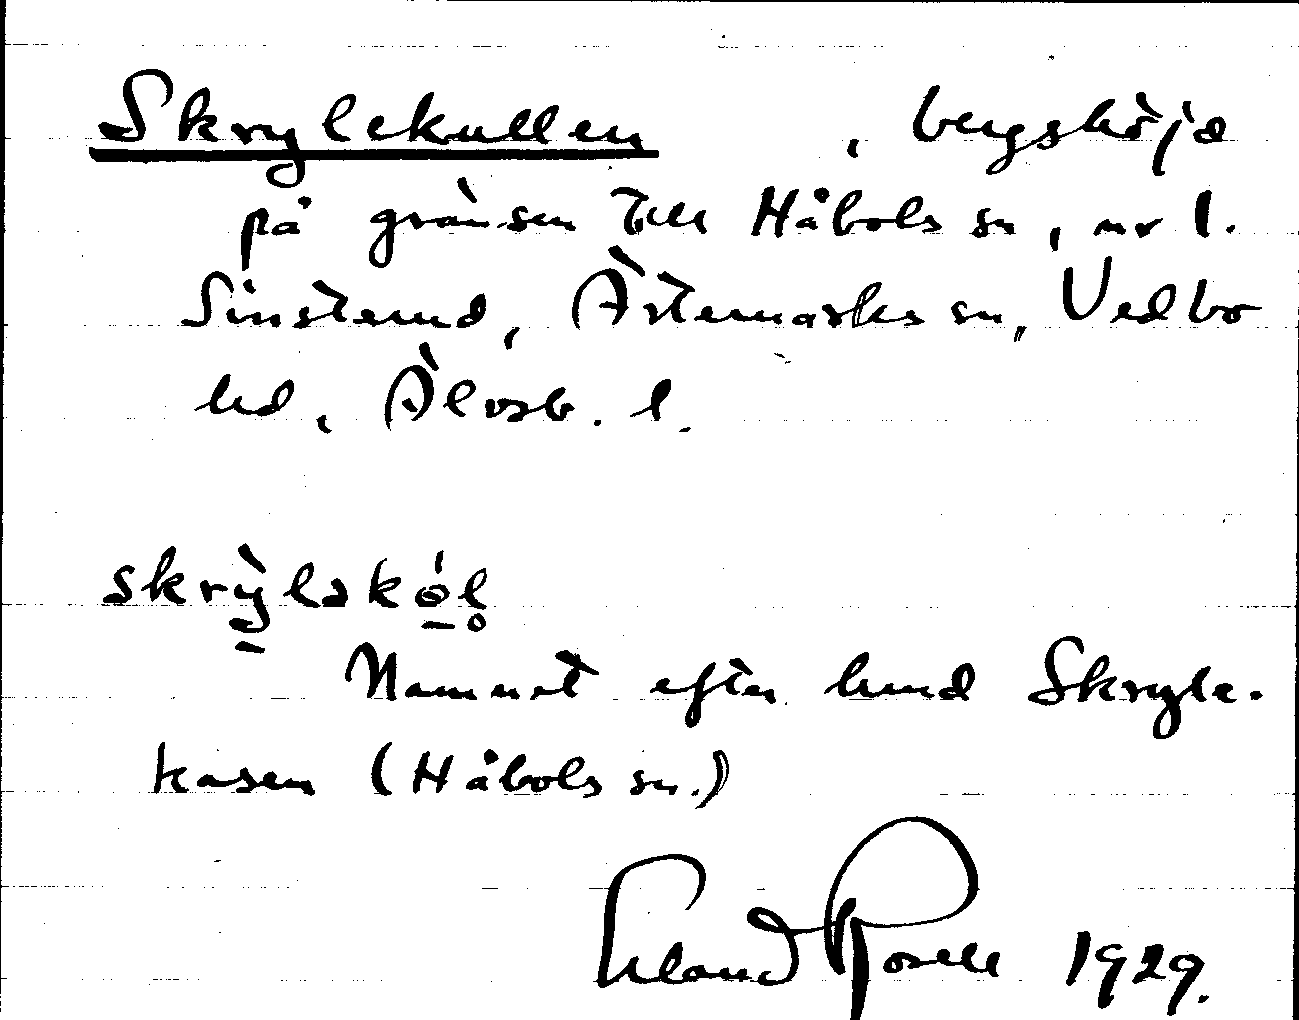 Skrylekullen , bergshöjd
på gränsen till Håbols sn, nr 1.
Sinsterud, Ärtemarks sn, Vedbo
hd, Älvsb. l.
skrỳləkól̥
Namnet efter hmd Skryle-
kasen (Håbols sn.)
Erland Rosell 1929.